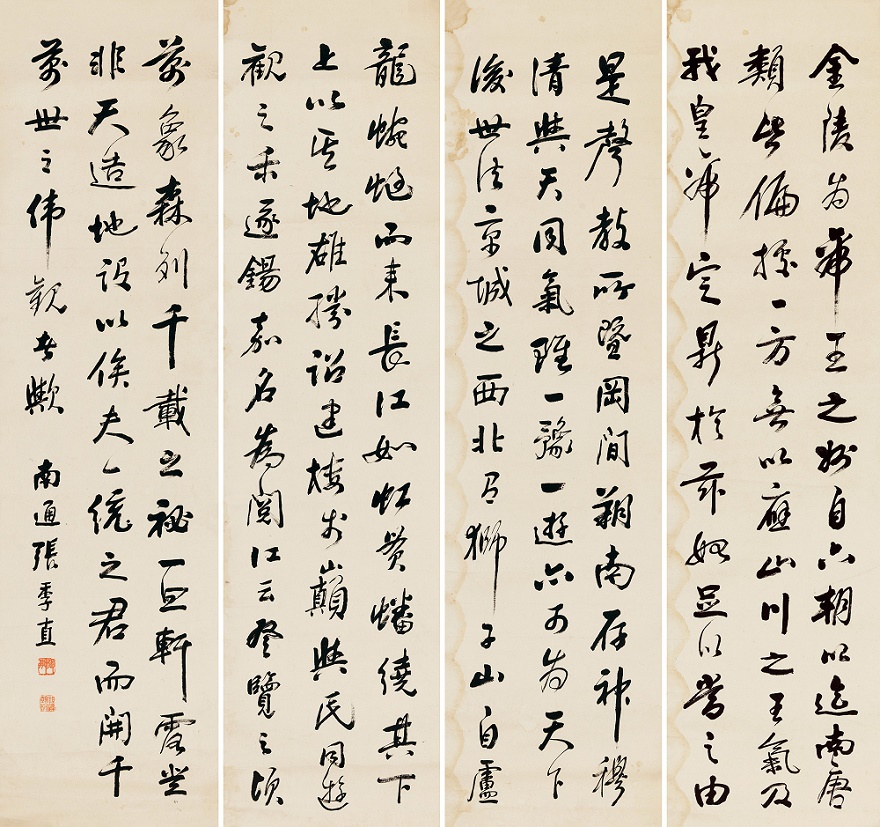 金陵為帝王之州自六朝以迄南唐
類皆偏據一方無以應山川之王氣及
我皇帝定鼎於茲始足以當之由
是聲教所暨岡間朔南存神穆
清與天同氣雖一豫一遊亦可為天下
後世法京城之西北有獅子山自盧
龍蜿蜒而来長江如虹貫蟠繞其下
上以其地雄勝詔建樓於巔與民同遊
觀之樂遂錫嘉名為閱江云登覽之頃
萬象森列千載之祕一旦軒露豈
非天造地設以俟夫一統之君而開千
萬世之偉觀者歟 南通張季直